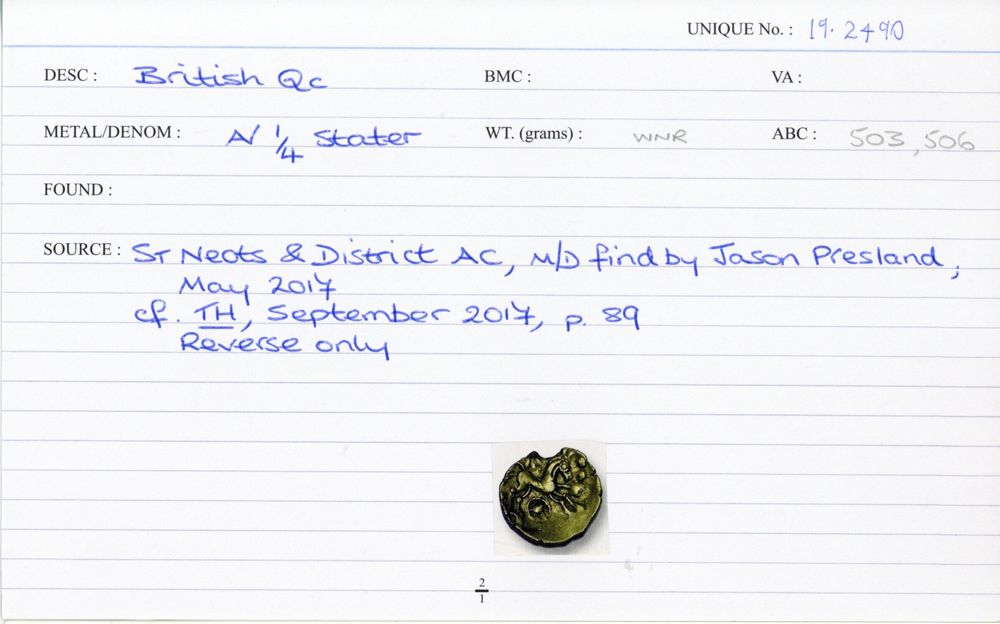 UNIQUE No. : 19. 2490
DESC : British Qc BMC : VA :
METAL/DENOM : A/ 1/4 Stater WT. (grams) : WNR ABC : 503, 506
FOUND :
SOURCE : St Neots & District AC, M/D find by Jason Presland,
May 2017
cf. TH, September 2017, p. 89
Reverse only
2/1